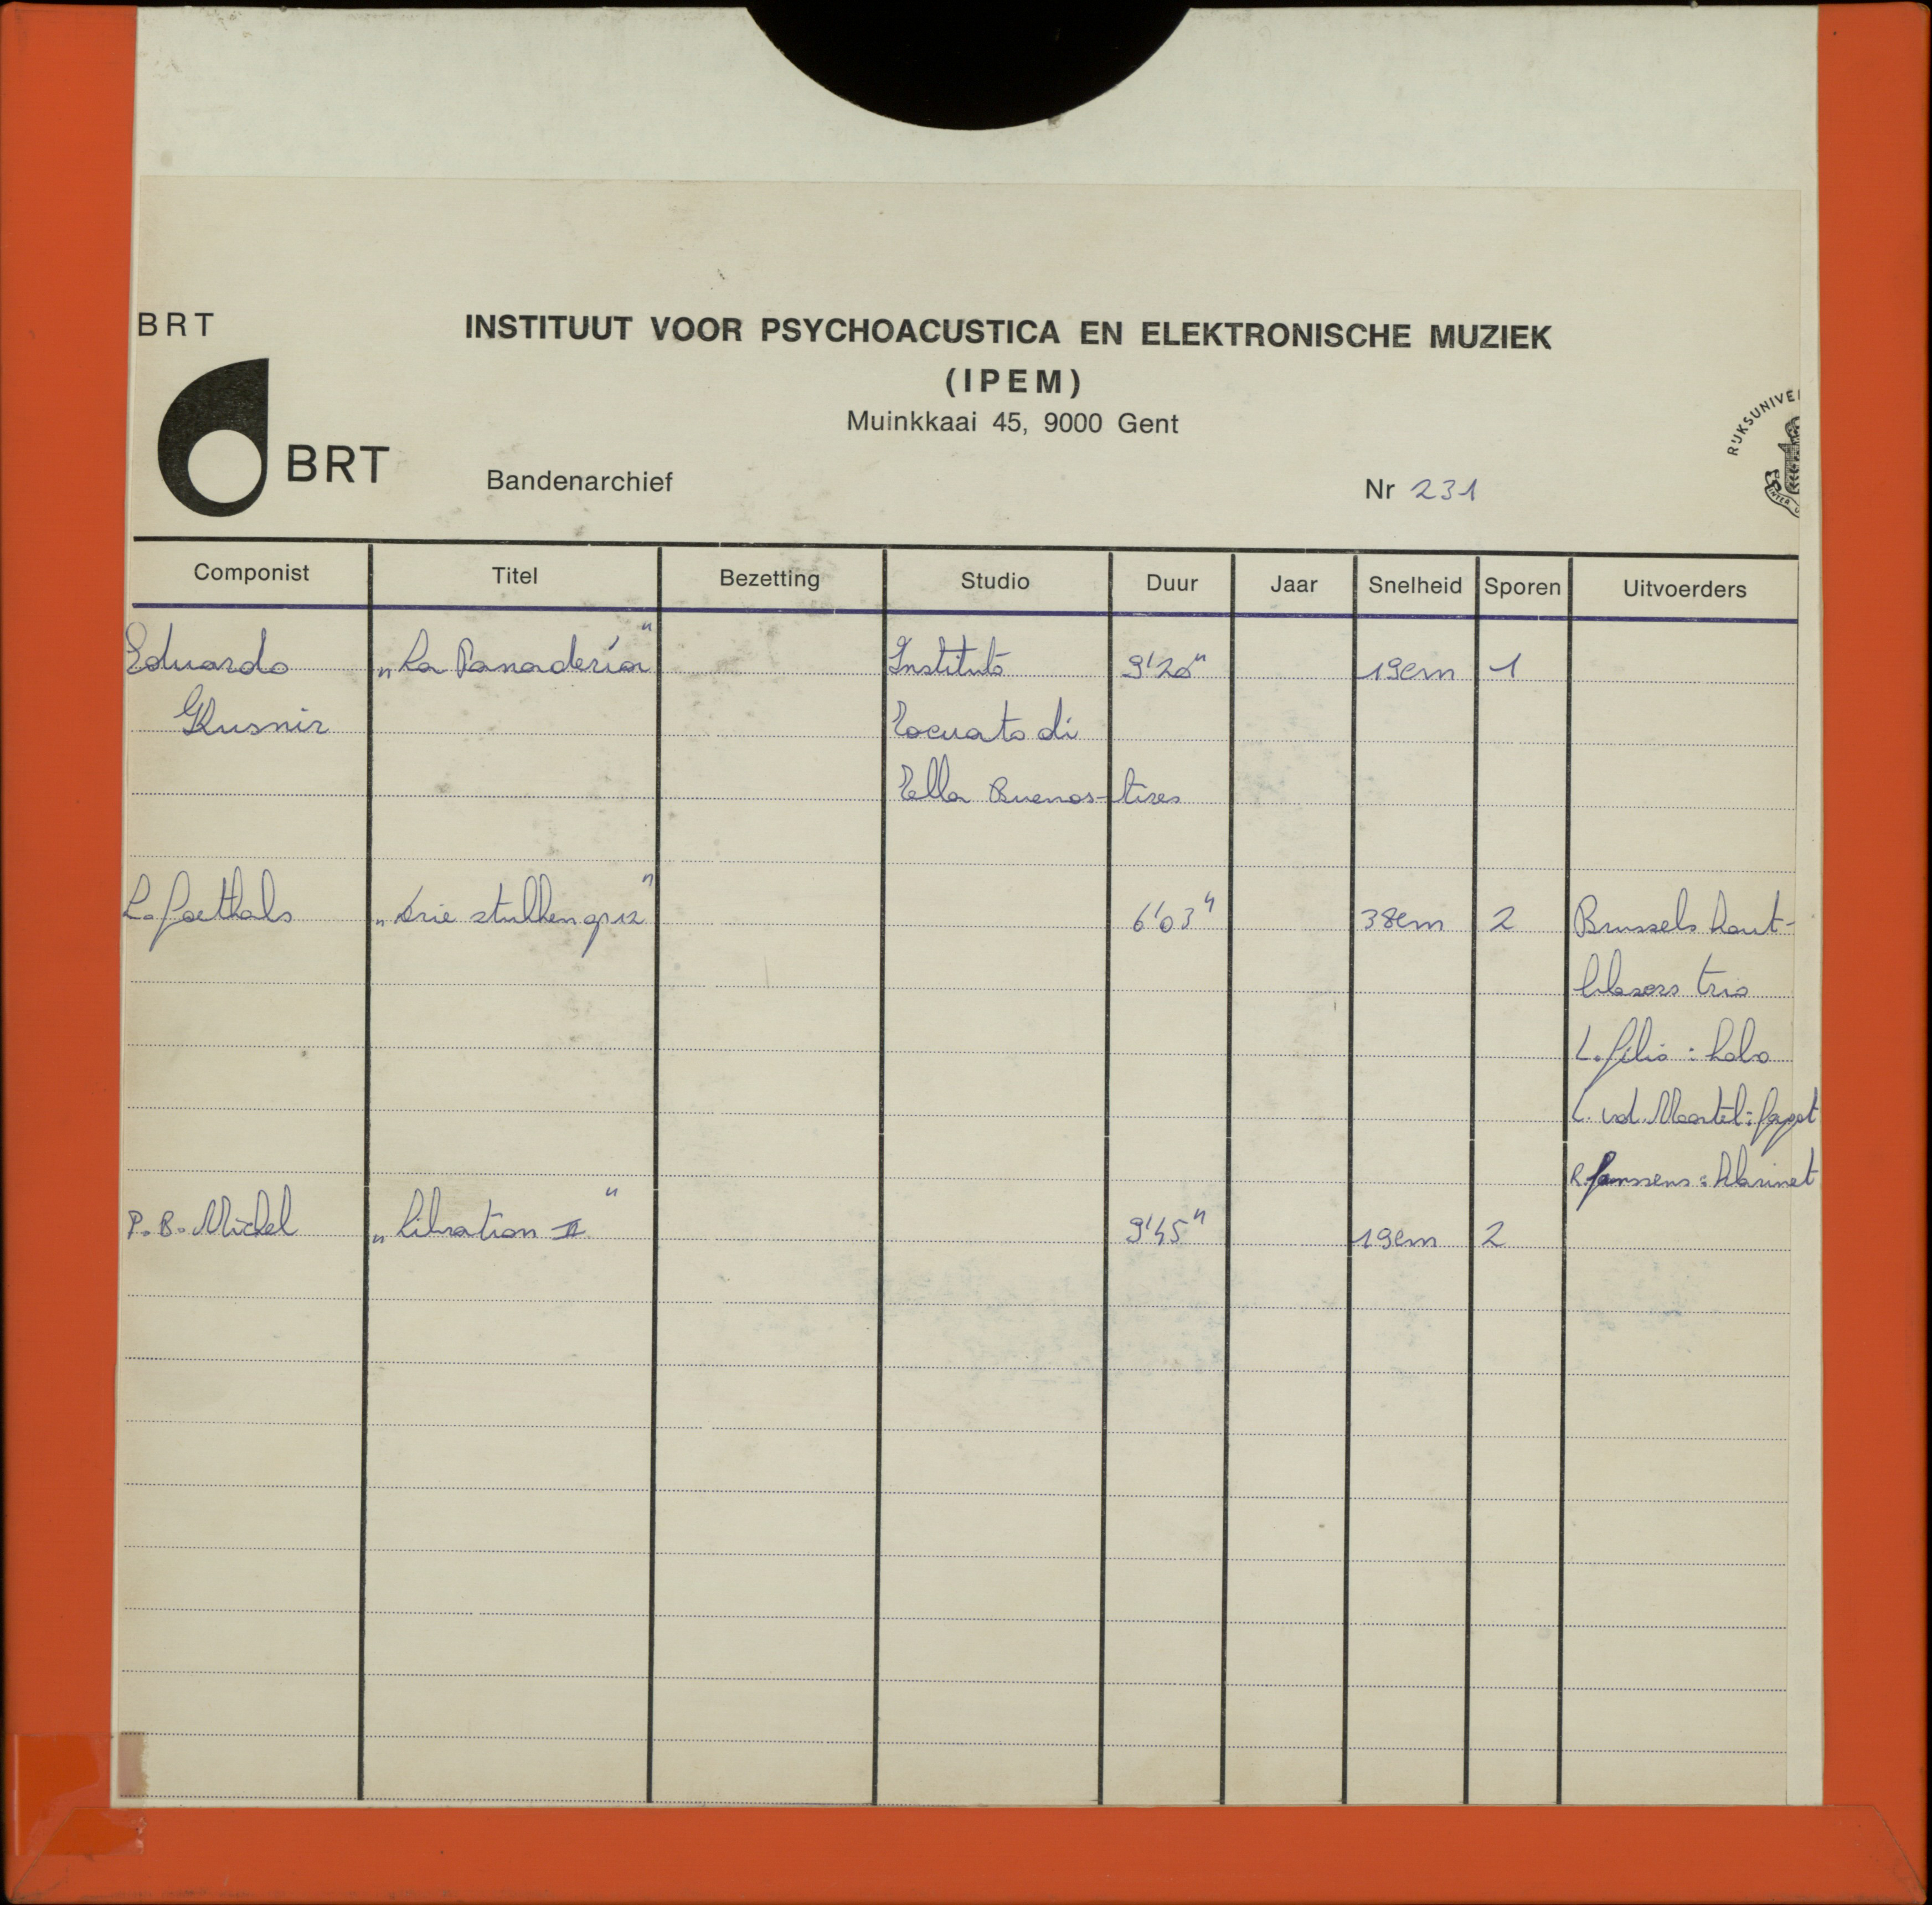 BRT
INSTITUUT VOOR PSYCHOACUSTICA EN ELEKTRONISCHE MUZIEK
(IPEM)
Muinkkaai 45, 9000 Gent
RIJKSUNIVE
INTER
BRT
Bandenarchief
Nr 231
Componist Titel Bezetting Studio Duur Jaar Snelheid Sporen Uitvoerders
Eduardo „La Panadería" Instituto 9'20" 19cm 1
Kusnir Tocuato di
Tella Buenos-Aires
L. Goethals „drie stukken op 12" 6'03" 38cm 2 Brussels hout-
blazers trio
L. Gilis : hobo
L. vd. Mortel : fagot
R. Janssens : klarinet
P. B. Michel „Libration II" 9'45" 19cm 2